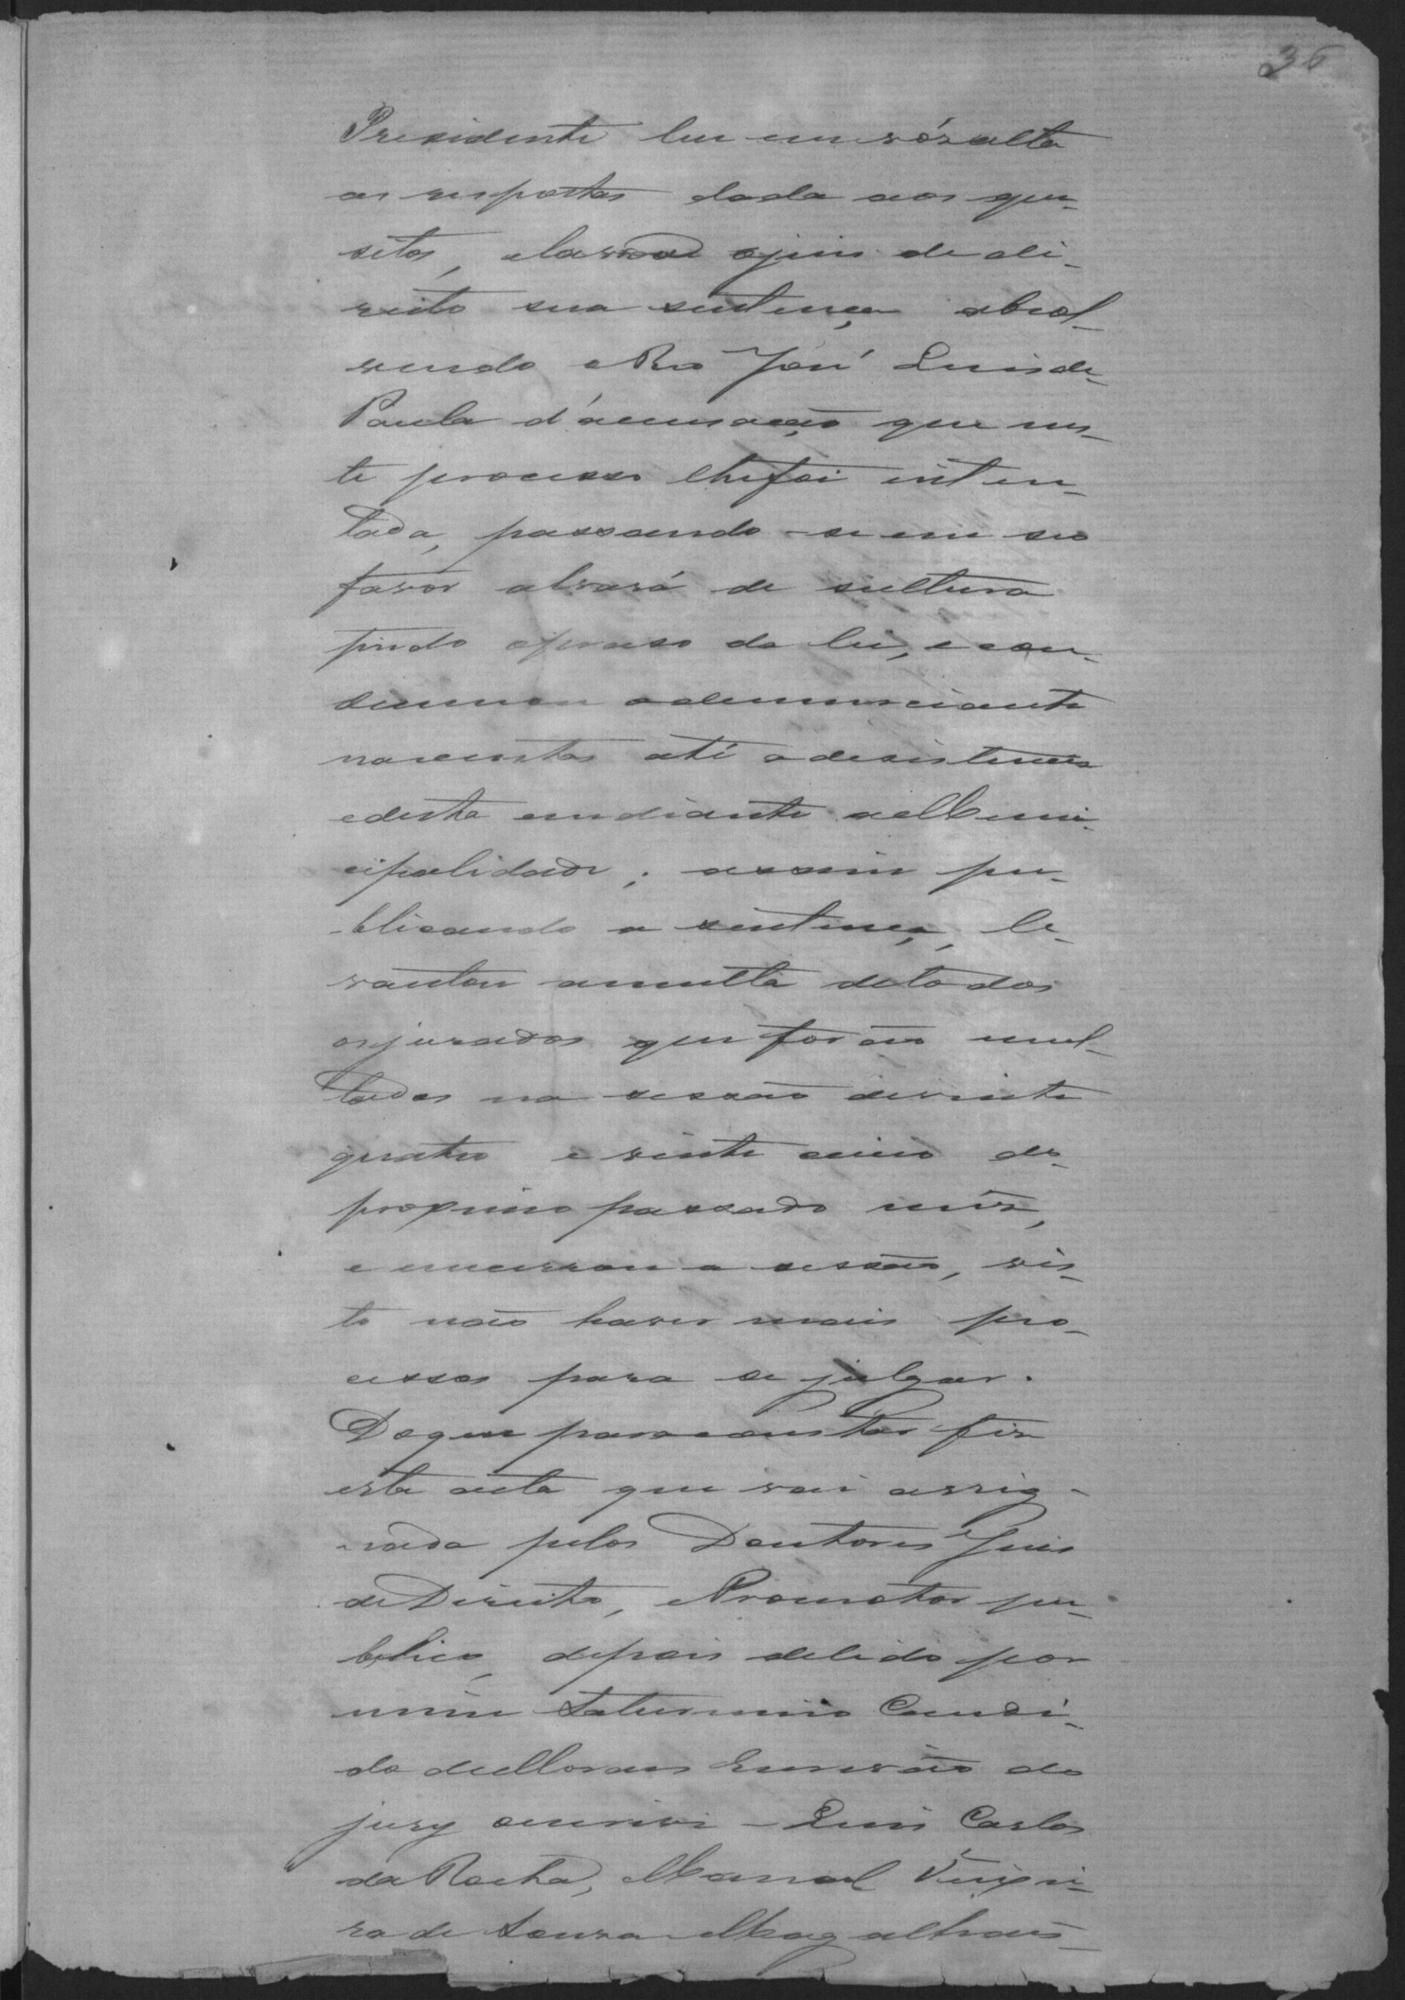 36
Presidente leu em vóz alta
as respostas dada aos que-
sitos, e lavrou o juis de di-
reito sua sentença absol-
vendo o Reo José Luis de
Paula d'acusação que nes-
te processo lhe foi inten-
tada, passando-se em seo
favor alvará de sultura
findo o praso da lei, e con-
demnou o denunciante
nas custas até a desistencia
e desta em diante a Muni-
cipalidade; assim pu-
blicando a sentença, le-
vantou a multa de todos
os jurados que forão mul-
tados na sessão de vinte
quatro e vinte cinco do
proximo passado mês,
e encerrou a sessão, vis-
to não haver mais pro-
cessos para se julgar.
Do que para constar fiz
esta acta que vai assig-
nada pelos Doutores Juis
de Direito, e Promotor pu-
blico, depois de lido por
mim Saturnino Candi-
do de Moraes Escrivão do
jury escrivi - Luis Carlos
da Rocha, Manoel Teixei-
ra de Souza Magalhães-